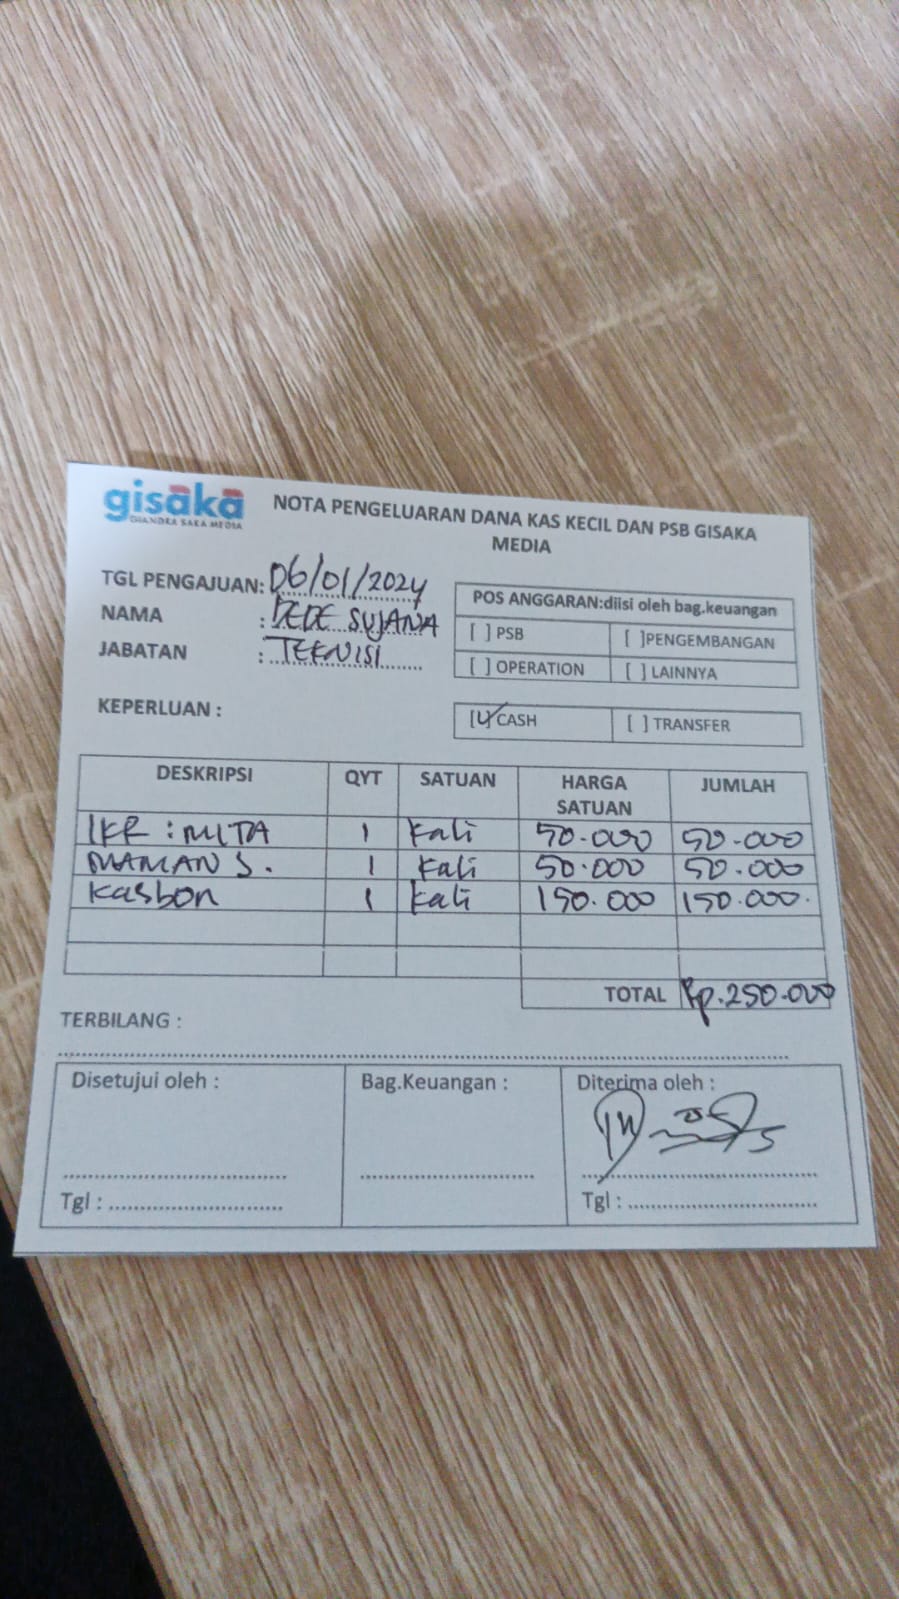 gisaka
CHANDRA SAKA MEDIA
NOTA PENGELUARAN DANA KAS KECIL DAN PSB GISAKA
MEDIA
TGL PENGAJUAN: 06/01/2024
NAMA : DEDE SUJANA
JABATAN : TEKNISI
POS ANGGARAN:diisi oleh bag.keuangan
[ ] PSB [ ]PENGEMBANGAN
[ ] OPERATION [ ] LAINNYA
KEPERLUAN :
[✓] CASH [ ] TRANSFER
DESKRIPSI QYT SATUAN HARGA SATUAN JUMLAH
IKR : MITA 1 Kali 50.000 50.000
MAMAN S. 1 Kali 50.000 50.000
Kasbon 1 Kali 150.000 150.000.
TOTAL Rp.250.000
TERBILANG :
Disetujui oleh : Bag.Keuangan : Diterima oleh :
Tgl : Tgl :